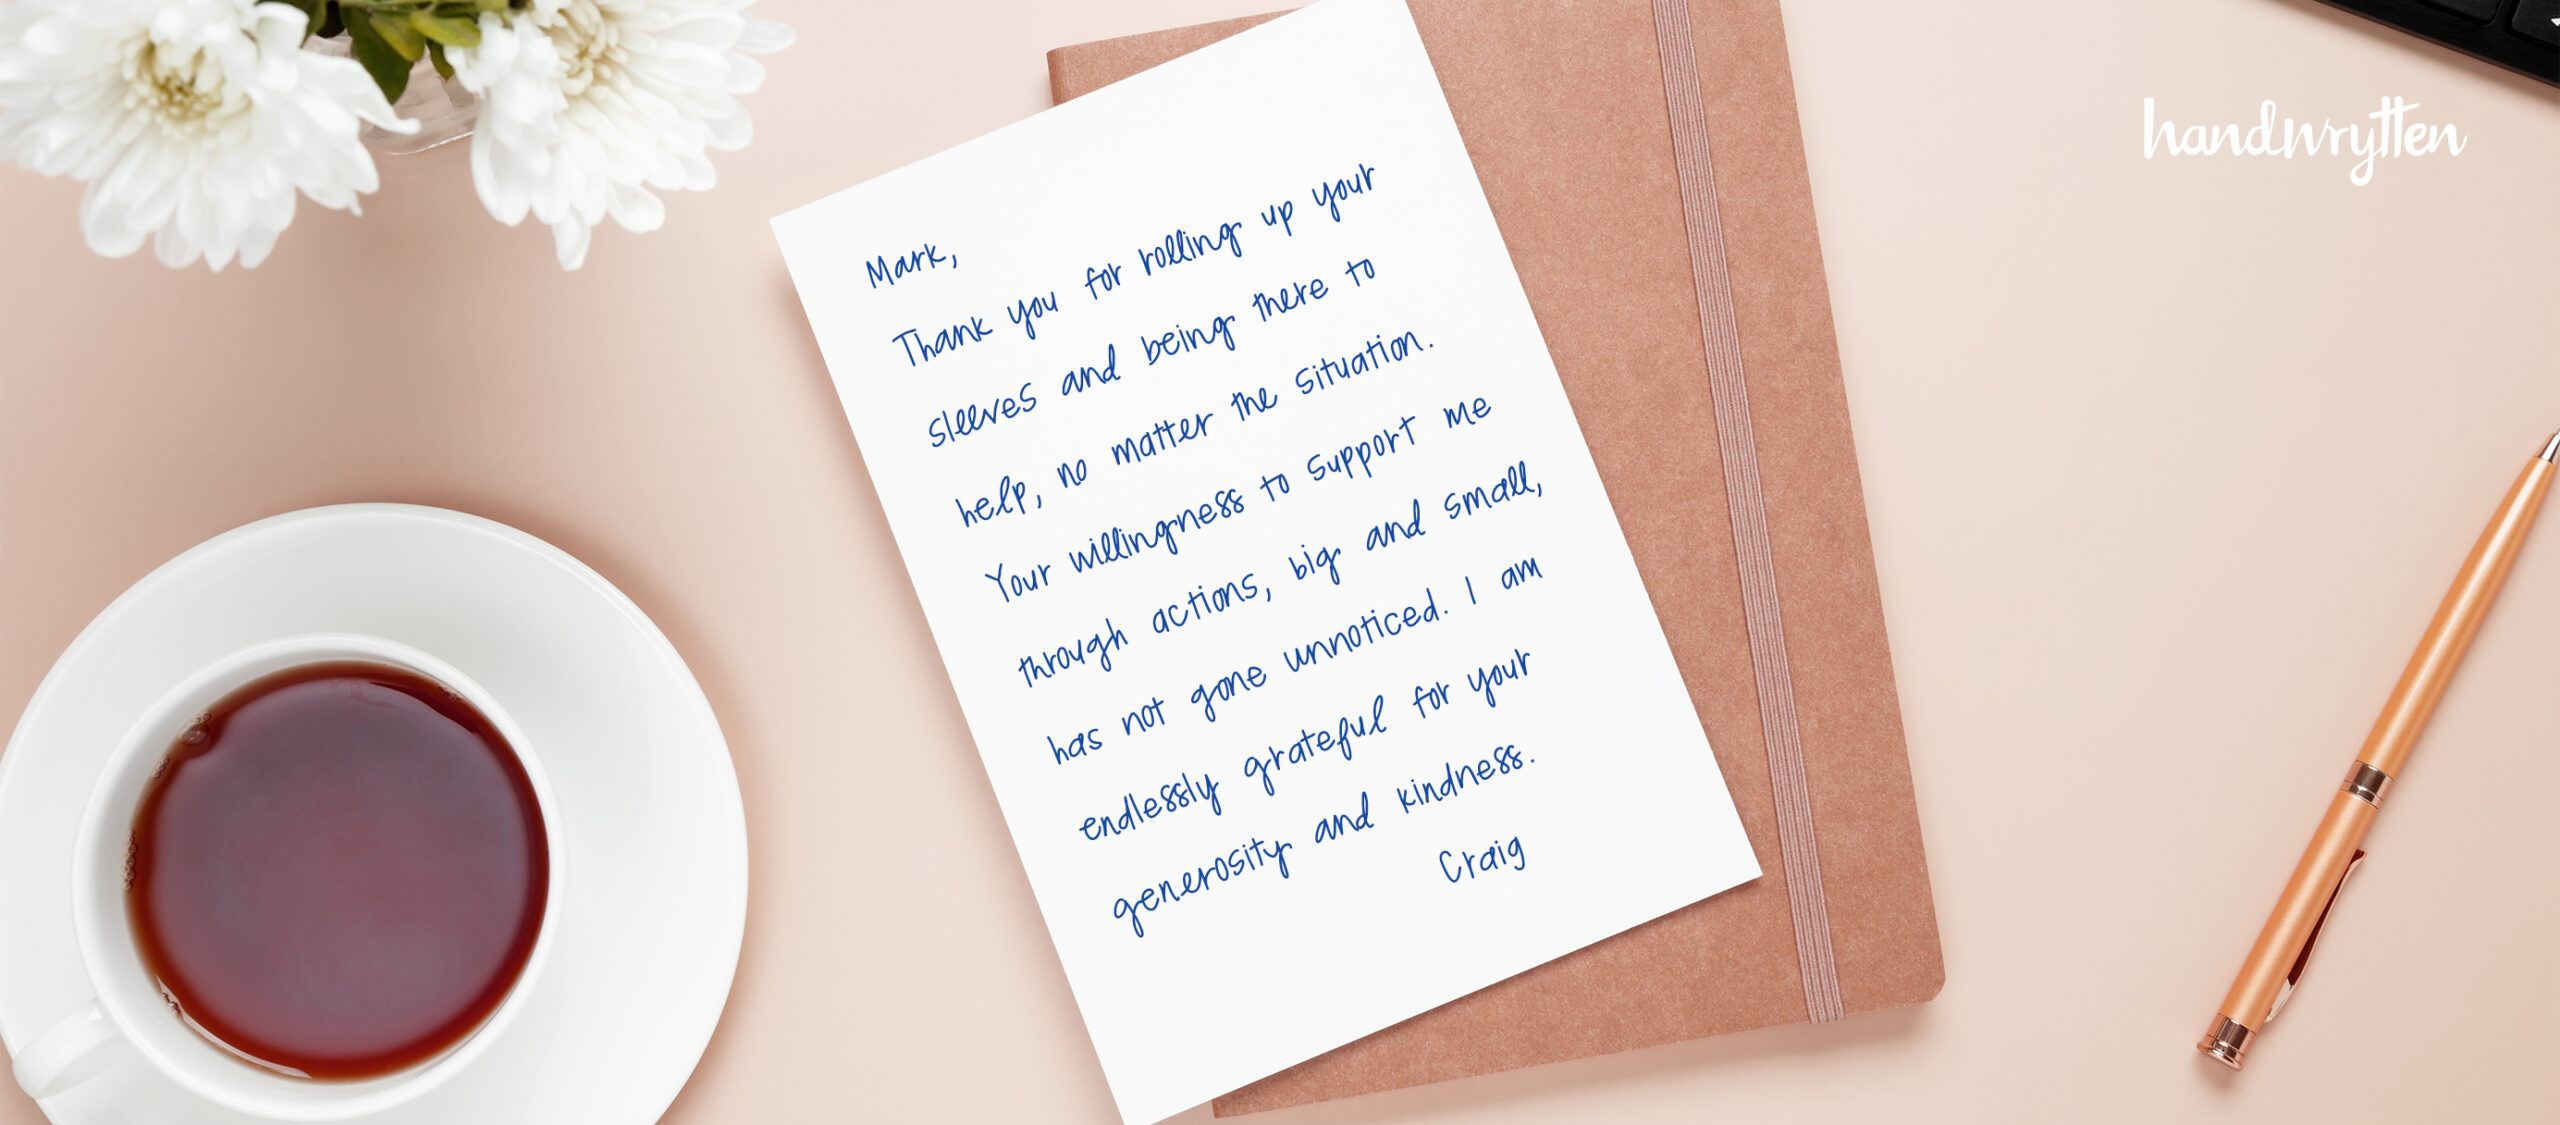 handwrytten
Mark,
Thank you for rolling up your
sleeves and being there to
help, no matter the situation.
Your willingness to support me
through actions, big and small,
has not gone unnoticed. I am
endlessly grateful for your
generosity and kindness.
Craig